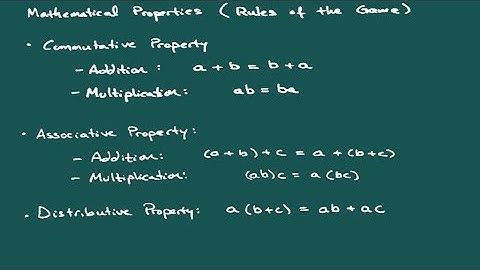 Mathematical Properties (Rules of the Game)
• Commutative Property
- Addition: a + b = b + a
- Multiplication: ab = ba
• Associative Property:
- Addition: (a + b) + c = a + (b+c)
- Multiplication: (ab)c = a(bc)
• Distributive Property: a(b+c) = ab + ac